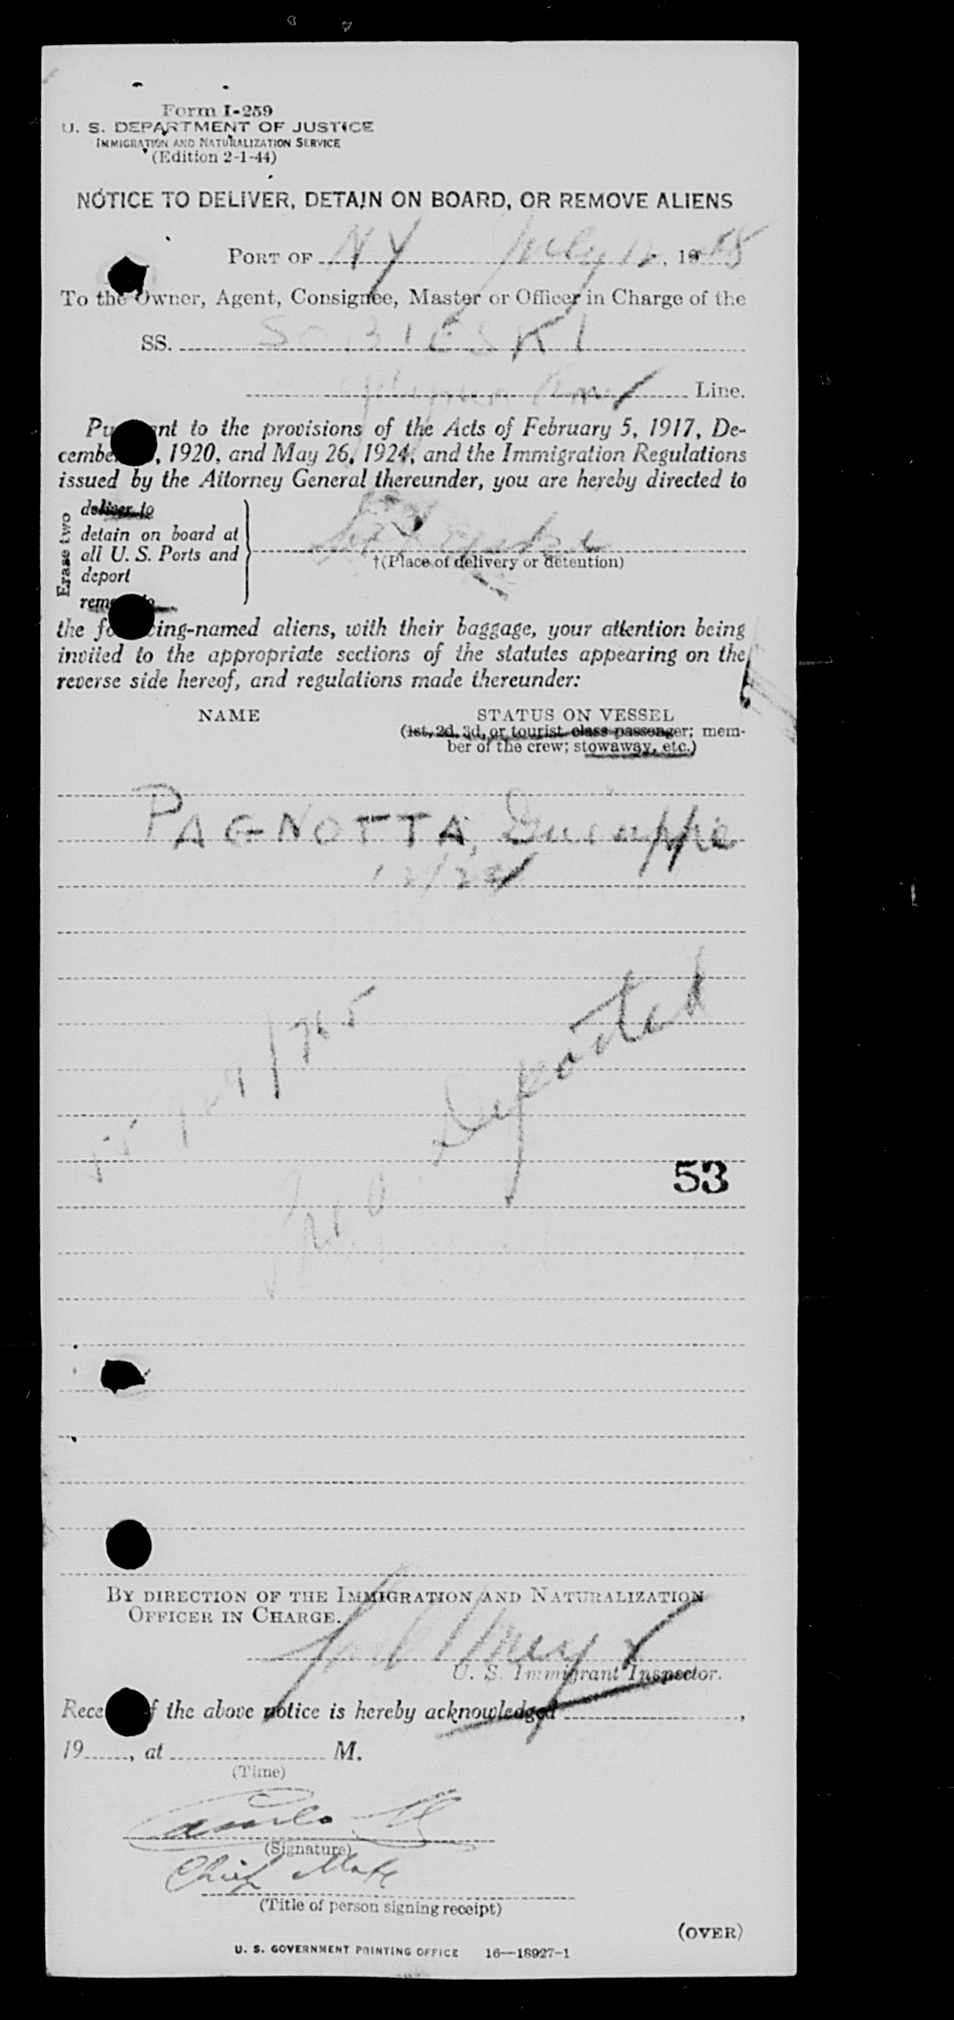 Form I-259
U. S. DEPARTMENT OF JUSTICE
IMMIGRATION AND NATURALIZATION SERVICE
(Edition 2-1-44)
NOTICE TO DELIVER, DETAIN ON BOARD, OR REMOVE ALIENS
PORT OF NY July 12, 1948
To the Owner, Agent, Consignee, Master or Officer in Charge of the
SS. SOBIESKI
Line.
Pursuant to the provisions of the Acts of February 5, 1917, De-
cember , 1920, and May 26, 1924, and the Immigration Regulations
issued by the Attorney General thereunder, you are hereby directed to
Erase two
deliver to
detain on board at
all U. S. Ports and
deport
remove to
†(Place of delivery or detention)
the following-named aliens, with their baggage, your attention being
invited to the appropriate sections of the statutes appearing on the
reverse side hereof, and regulations made thereunder:
NAME STATUS ON VESSEL
(1st, 2d, 3d, or tourist class passenger; mem-
ber of the crew; stowaway, etc.)
PAGNOTTA, Guiseppe
Deported
53
BY DIRECTION OF THE IMMIGRATION AND NATURALIZATION
OFFICER IN CHARGE.
U. S. Immigrant Inspector.
Receipt of the above notice is hereby acknowledged ,
19 , at M.
(Time)
(Signature)
Chief Mate
(Title of person signing receipt)
(OVER)
U. S. GOVERNMENT PRINTING OFFICE 16—18927-1